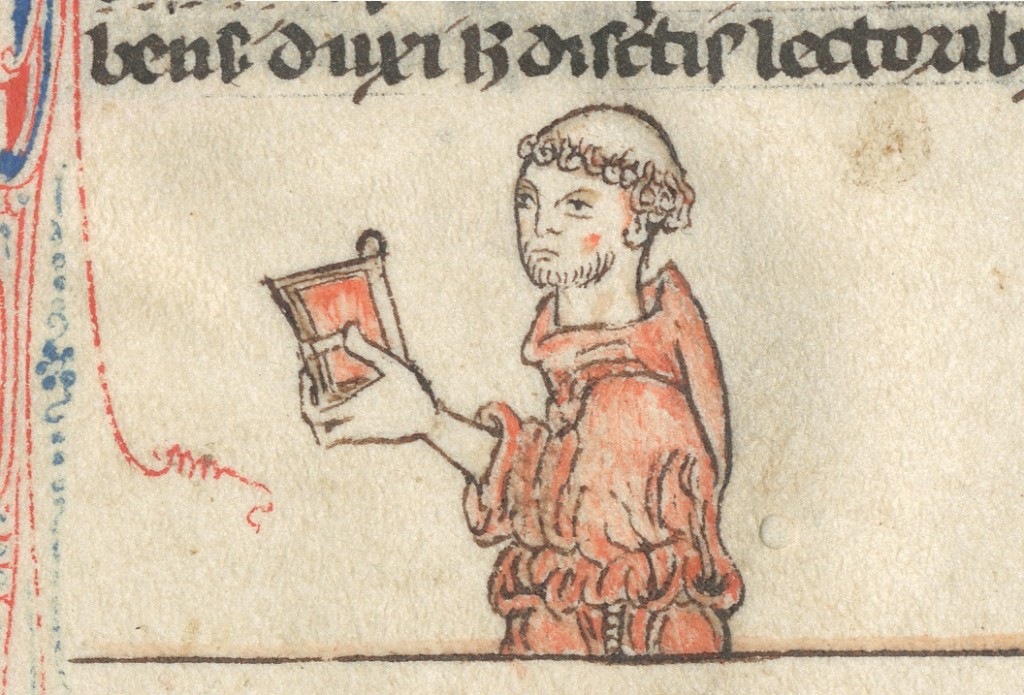 bens duxi & disc̄tis lectorib